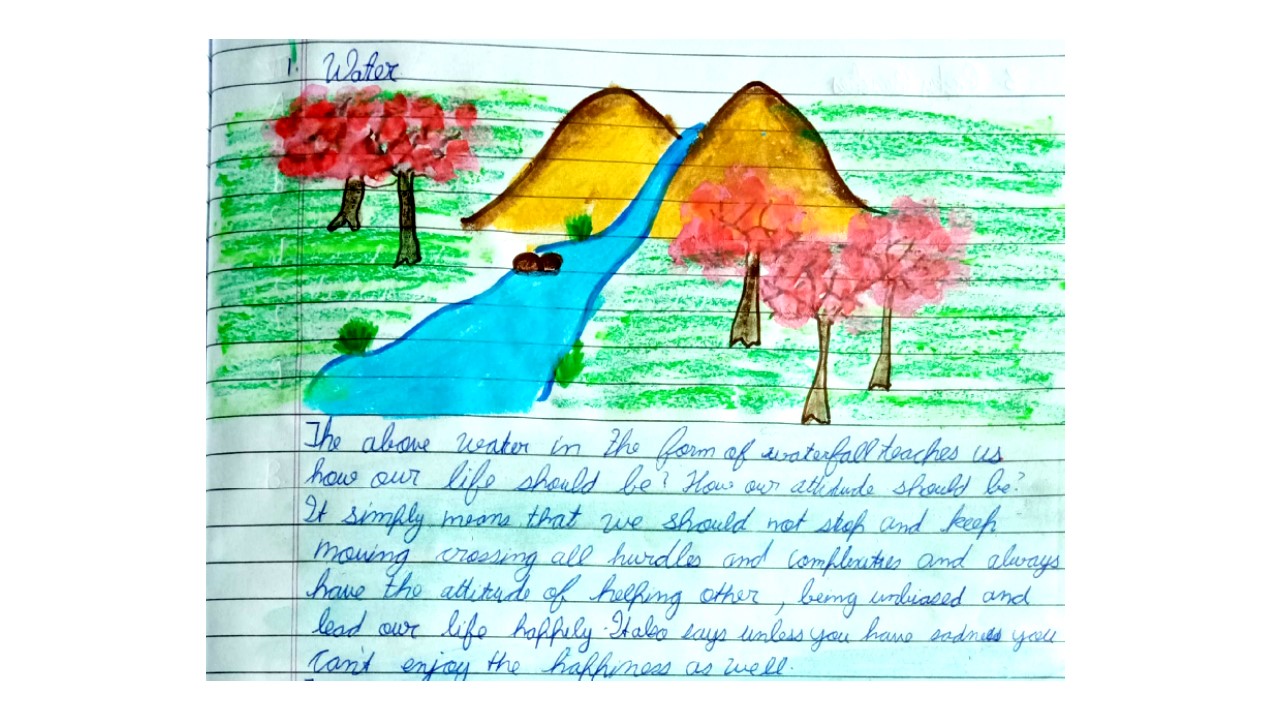 1. Water
The above water in the form of waterfall teaches us
how our life should be? How our attitude should be?
It simply means that we should not stop and keep
moving crossing all hurdles and complexities and always
have the attitude of helping other, being unbiased and
lead our life happily. It also says unless you have sadness you
can't enjoy the happiness as well.